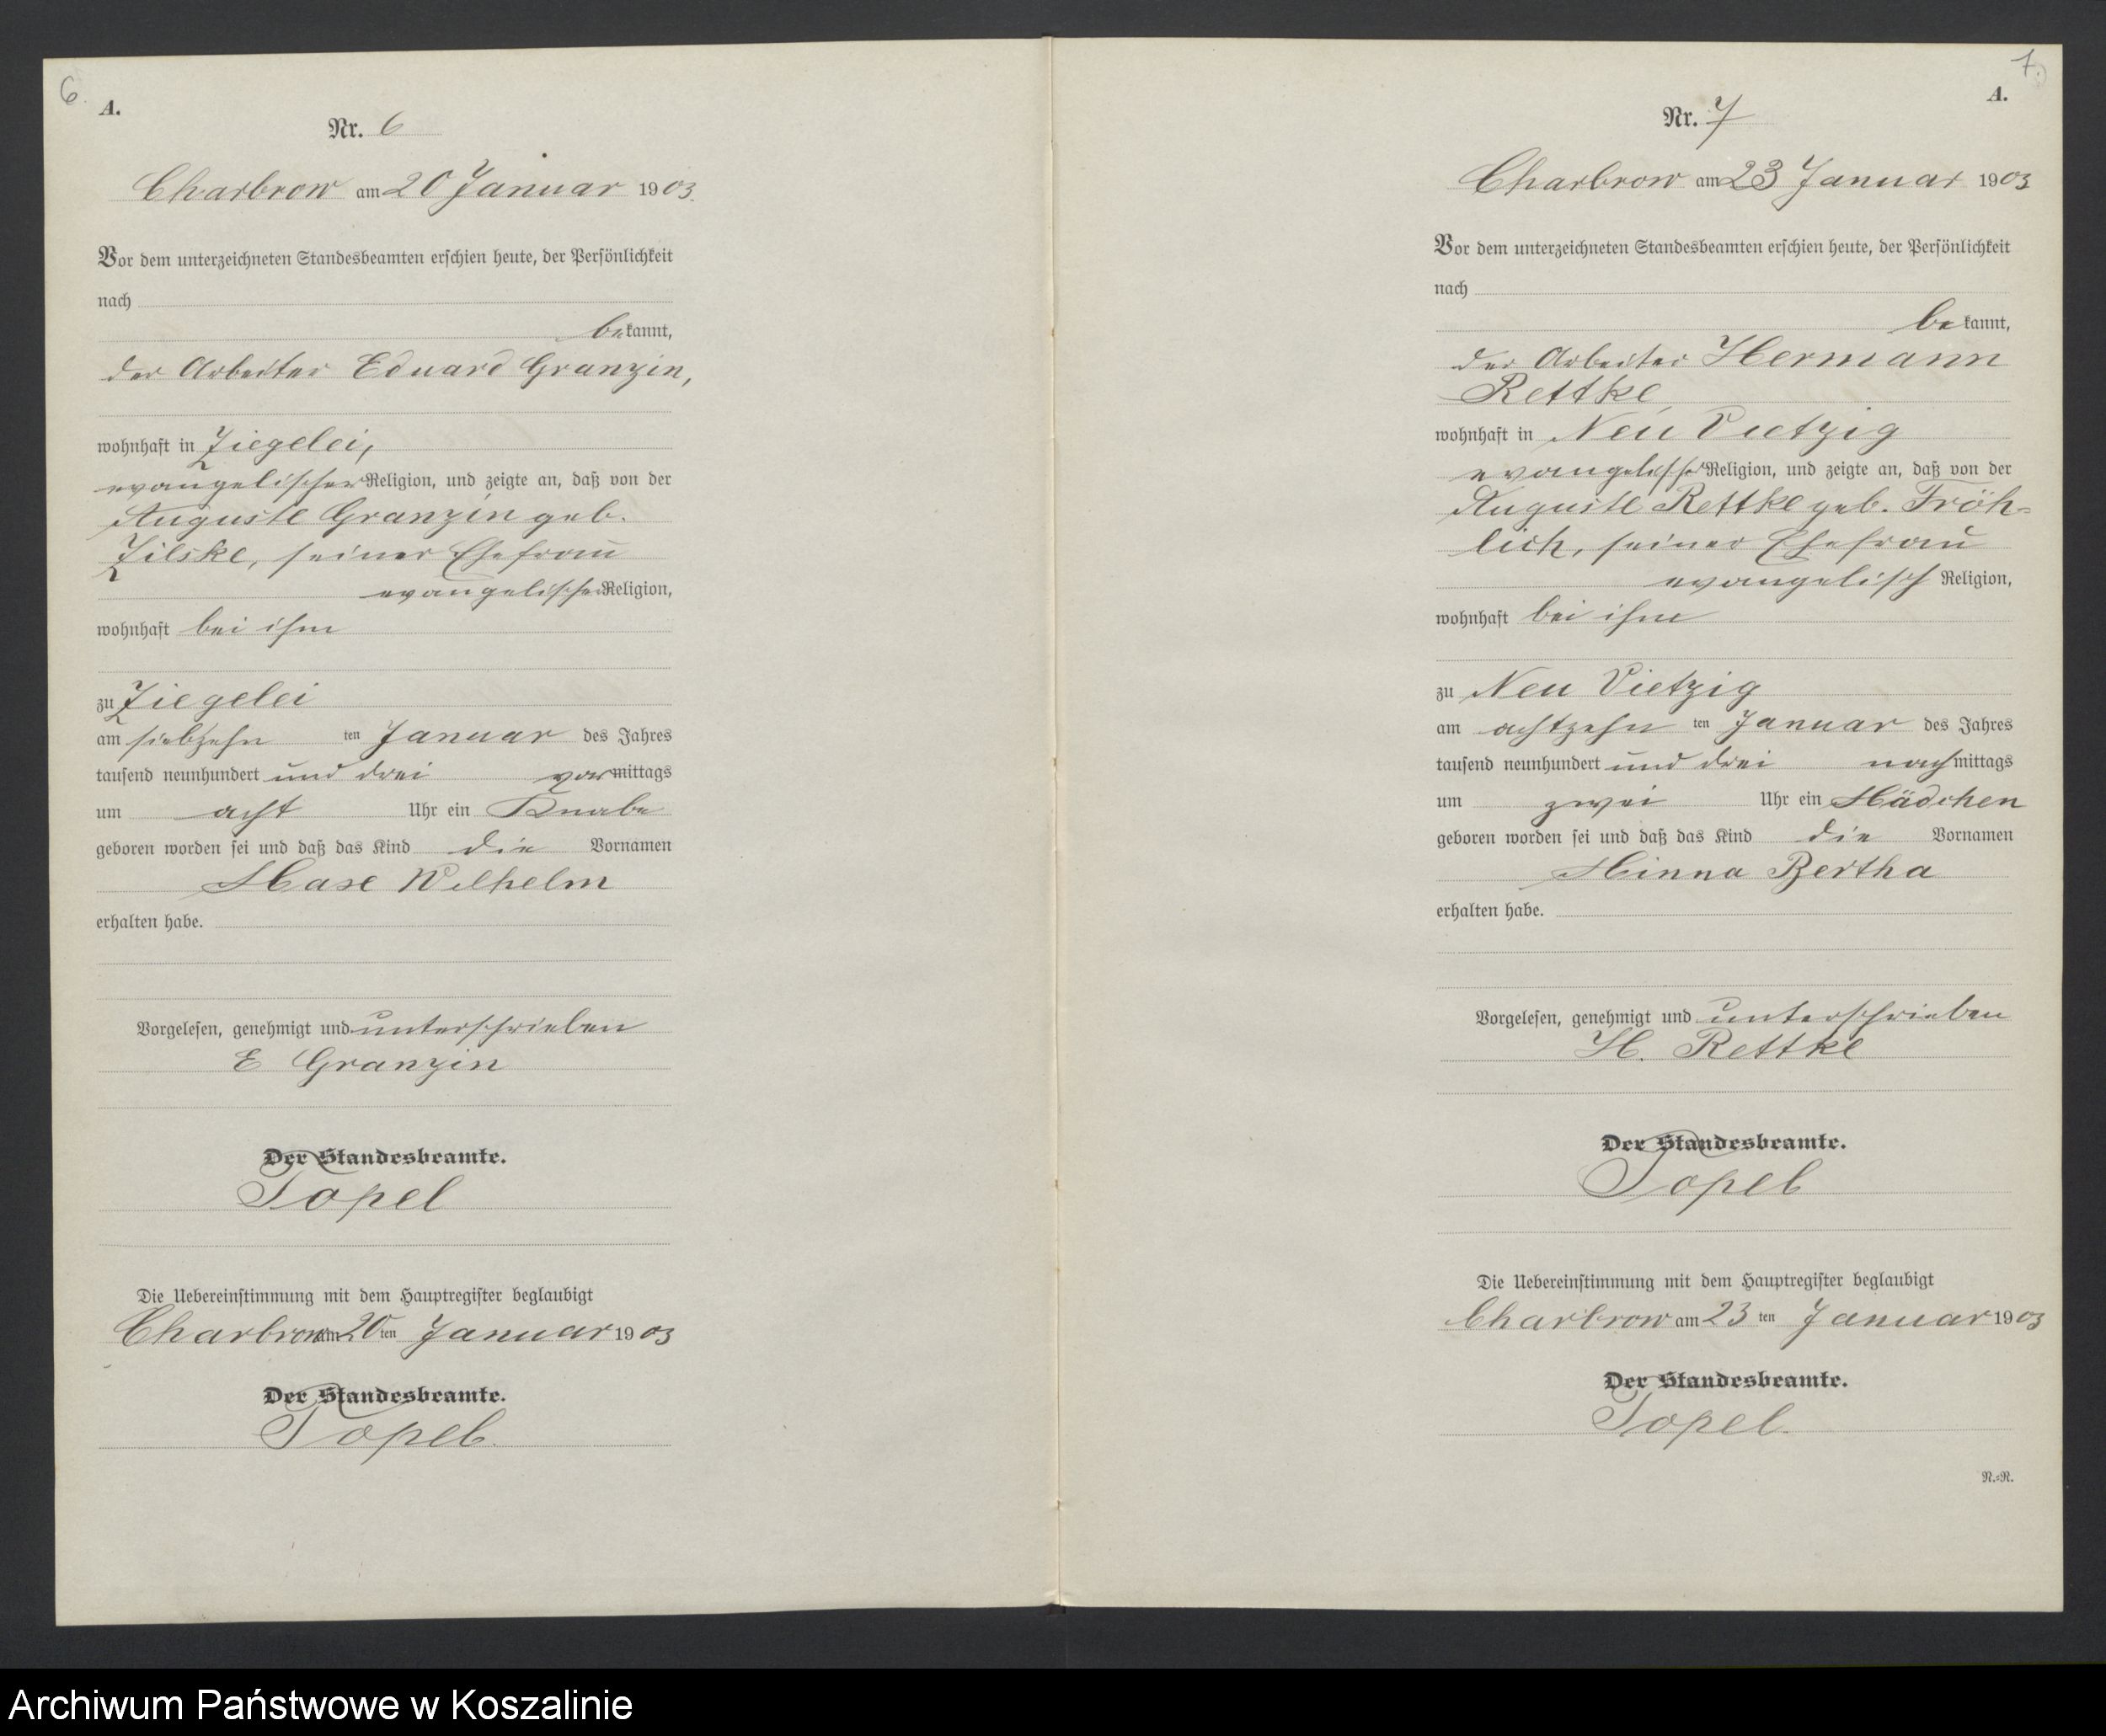 6.
A.
Nr. 6
Charbrow am 20 Januar 1903.
Vor dem unterzeichneten Standesbeamten erschien heute, der Persönlichkeit
nach
bekannt,
der Arbeiter Eduard Granzin,
wohnhaft in Ziegelei,
evangelischer Religion, und zeigte an, daß von der
Auguste Granzin geb.
Zilske, seiner Ehefrau
evangelischer Religion,
wohnhaft bei ihm
zu Ziegelei
am siebzehn ten Januar des Jahres
tausend neunhundert und drei vormittags
um acht Uhr ein Knabe
geboren worden sei und daß das Kind die Vornamen
Max Wilhelm
erhalten habe.
Vorgelesen, genehmigt und unterschrieben
E Granzin
Der Standesbeamte.
Topel
Die Uebereinstimmung mit dem Hauptregister beglaubigt
Charbrow am 20 ten Januar 1903
Der Standesbeamte.
Topel.
7.
A.
Nr. 7
Charbrow am 23 Januar 1903
Vor dem unterzeichneten Standesbeamten erschien heute, der Persönlichkeit
nach
bekannt,
der Arbeiter Hermann
Rettke,
wohnhaft in Neu Vietzig
evangelischer Religion, und zeigte an, daß von der
Auguste Rettke geb. Fröh=
lich, seiner Ehefrau
evangelisch Religion,
wohnhaft bei ihm
zu Neu Vietzig
am achtzehn ten Januar des Jahres
tausend neunhundert und drei nachmittags
um zwei Uhr ein Mädchen
geboren worden sei und daß das Kind die Vornamen
Minna Bertha
erhalten habe.
Vorgelesen, genehmigt und unterschrieben
H. Rettke
Der Standesbeamte.
Topel
Die Uebereinstimmung mit dem Hauptregister beglaubigt
Charbrow am 23 ten Januar 1903
Der Standesbeamte.
Topel.
N.=R.
Archiwum Państwowe w Koszalinie